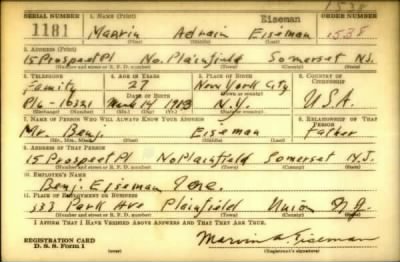 1538
SERIAL NUMBER 1. NAME (Print) Eiseman ORDER NUMBER
1181 Marvin Adrain Eiseman 1538
(First) (Middle) (Last)
2. ADDRESS (Print)
15 Prospect Pl No. Plainfield Somerset N.J.
(Number and street or R. F. D. number) (Town) (County) (State)
3. TELEPHONE 4. AGE IN YEARS 5. PLACE OF BIRTH 6. COUNTRY OF CITIZENSHIP
Family 27 New York City
DATE OF BIRTH (Town or county)
Pl6-16321 March 14 1913 N.Y. U.S.A.
(Exchange) (Number) (Mo.) (Day) (Yr.) (State or country)
7. NAME OF PERSON WHO WILL ALWAYS KNOW YOUR ADDRESS 8. RELATIONSHIP OF THAT PERSON
Mr. Benj. Eiseman Father
(Mr., Mrs., Miss) (First) (Middle) (Last)
9. ADDRESS OF THAT PERSON
15 Prospect Pl No Plainfield Somerset N.J.
(Number and street or R. F. D. number) (Town) (County) (State)
10. EMPLOYER'S NAME
Benj. Eiseman Inc.
11. PLACE OF EMPLOYMENT OR BUSINESS
333 Park Ave Plainfield Union N.J.
(Number and street or R. F. D. number) (Town) (County) (State)
I AFFIRM THAT I HAVE VERIFIED ABOVE ANSWERS AND THAT THEY ARE TRUE.
REGISTRATION CARD
D. S. S. Form 1 Marvin A. Eiseman
(Registrant's signature)